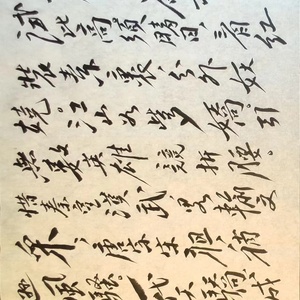 試比高須晴日,看紅
裝素裹,分外妖
嬈。江山如此多嬌。引
無數英雄競折腰。
惜秦皇漢武,略輸文
采,唐宗宋祖,稍
遜風騷。一代天驕,成